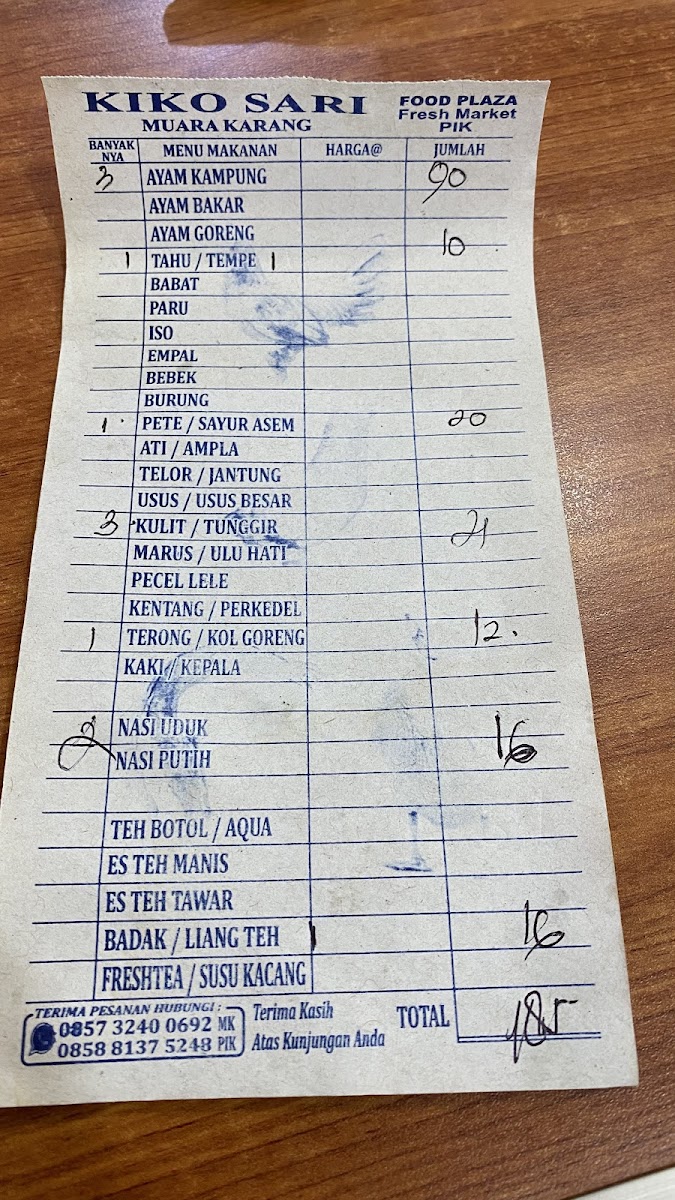 KIKO SARI FOOD PLAZA
MUARA KARANG Fresh Market
PIK
BANYAK NYA MENU MAKANAN HARGA@ JUMLAH
3 AYAM KAMPUNG 90
AYAM BAKAR
AYAM GORENG
1 TAHU / TEMPE 1 10
BABAT
PARU
ISO
EMPAL
BEBEK
BURUNG
1 PETE / SAYUR ASEM 20
ATI / AMPLA
TELOR / JANTUNG
USUS / USUS BESAR
3 KULIT / TUNGGIR 21
MARUS / ULU HATI
PECEL LELE
KENTANG / PERKEDEL
1 TERONG / KOL GORENG 12.
KAKI / KEPALA
2 NASI UDUK 16
NASI PUTIH
TEH BOTOL / AQUA
ES TEH MANIS
ES TEH TAWAR
BADAK / LIANG TEH 1 16
FRESHTEA / SUSU KACANG
TERIMA PESANAN HUBUNGI : Terima Kasih TOTAL 185
0857 3240 0692 MK Atas Kunjungan Anda
0858 8137 5248 PIK